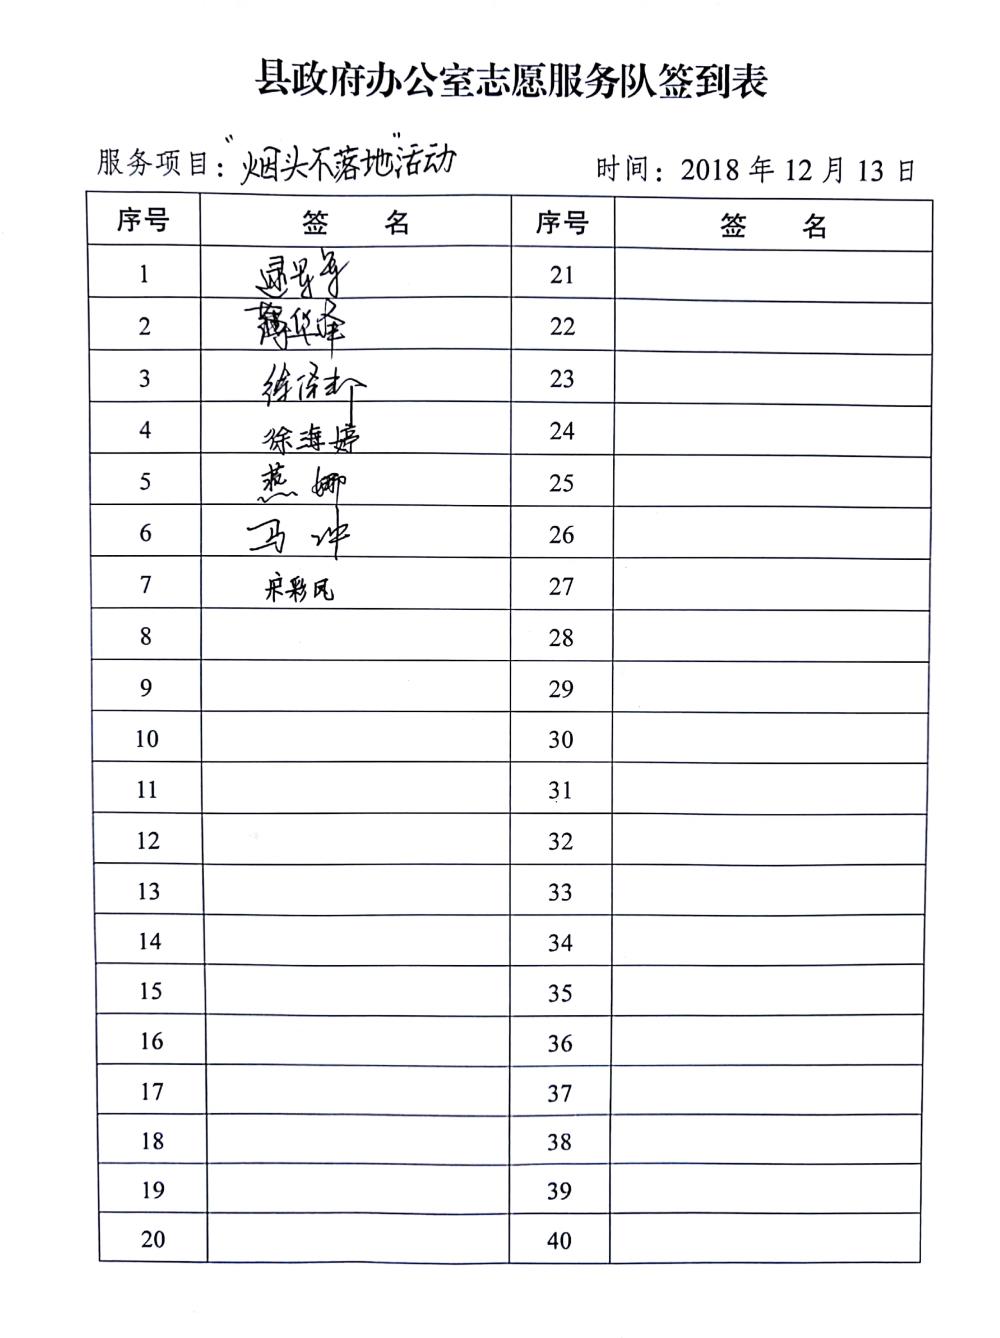 县政府办公室志愿服务队签到表
服务项目：“烟头不落地”活动 时间：2018年12月13日
序号 签 名 序号 签 名
1 21
2 华 22
3 徐 23
4 徐海婷 24
5 燕娜 25
6 马冲 26
7 宋彩凤 27
8 28
9 29
10 30
11 31
12 32
13 33
14 34
15 35
16 36
17 37
18 38
19 39
20 40